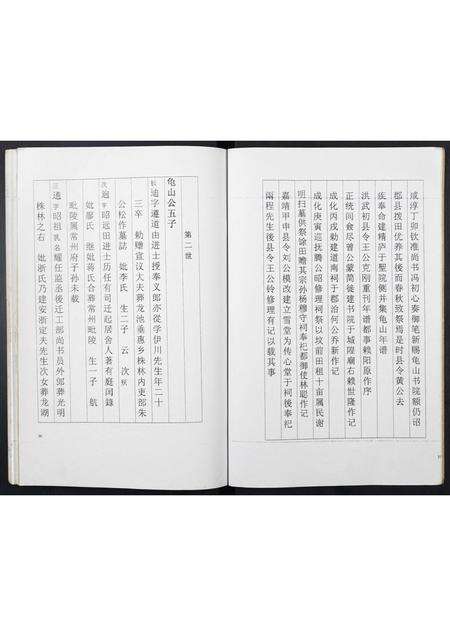 咸淳丁卯钦准尚书冯初心奏御笔新赐龟山书院额仍诏
郡县拨田优养其後而春秋致祭焉是时县令黄公去
疾奉命建精庐于墅院侧并集龟山年谱
洪武初县令王公克刚重刊年谱都事赖阳原作序
正统间佥尽曾公蒙简徙建书院于城隍廟右赖世隆作记
成化丙戌勅建道南祠于郡治何公乔新作记
成化庚寅巡抚腾公昭修理祠祭以坟前田租十亩属民谢
咀扫墓供祭馀田赡其宗孙杨穆守祠奉祀都御使林聪作记
嘉靖甲申县令刘公模改建立雪堂为传心堂于祠後奉祀
兩程先生後县令王公铃修理有记以载其事
37
第二世
龟山公五子
長 迪 字遵道由進士授奉义郎亦從学伊川先生年二十
三卒 勅赠宣议大夫葬龙池乘惠乡株林内吏部朱
公松作墓誌 妣李氏 生二子 云 次
次 迥 字昭远田进士历任有司迁起居舍人著有庭闱錄
妣廖氏 继妣蒋氏合葬常州毗陵 生一子 航
毗陵属常州府子孙未载
三 遹 字昭祖 乳名 耀任监丞後迁工部尚书员外郎葬光明
株林之右 妣浙氏乃建安浙定夫先生次女葬龙湖
36